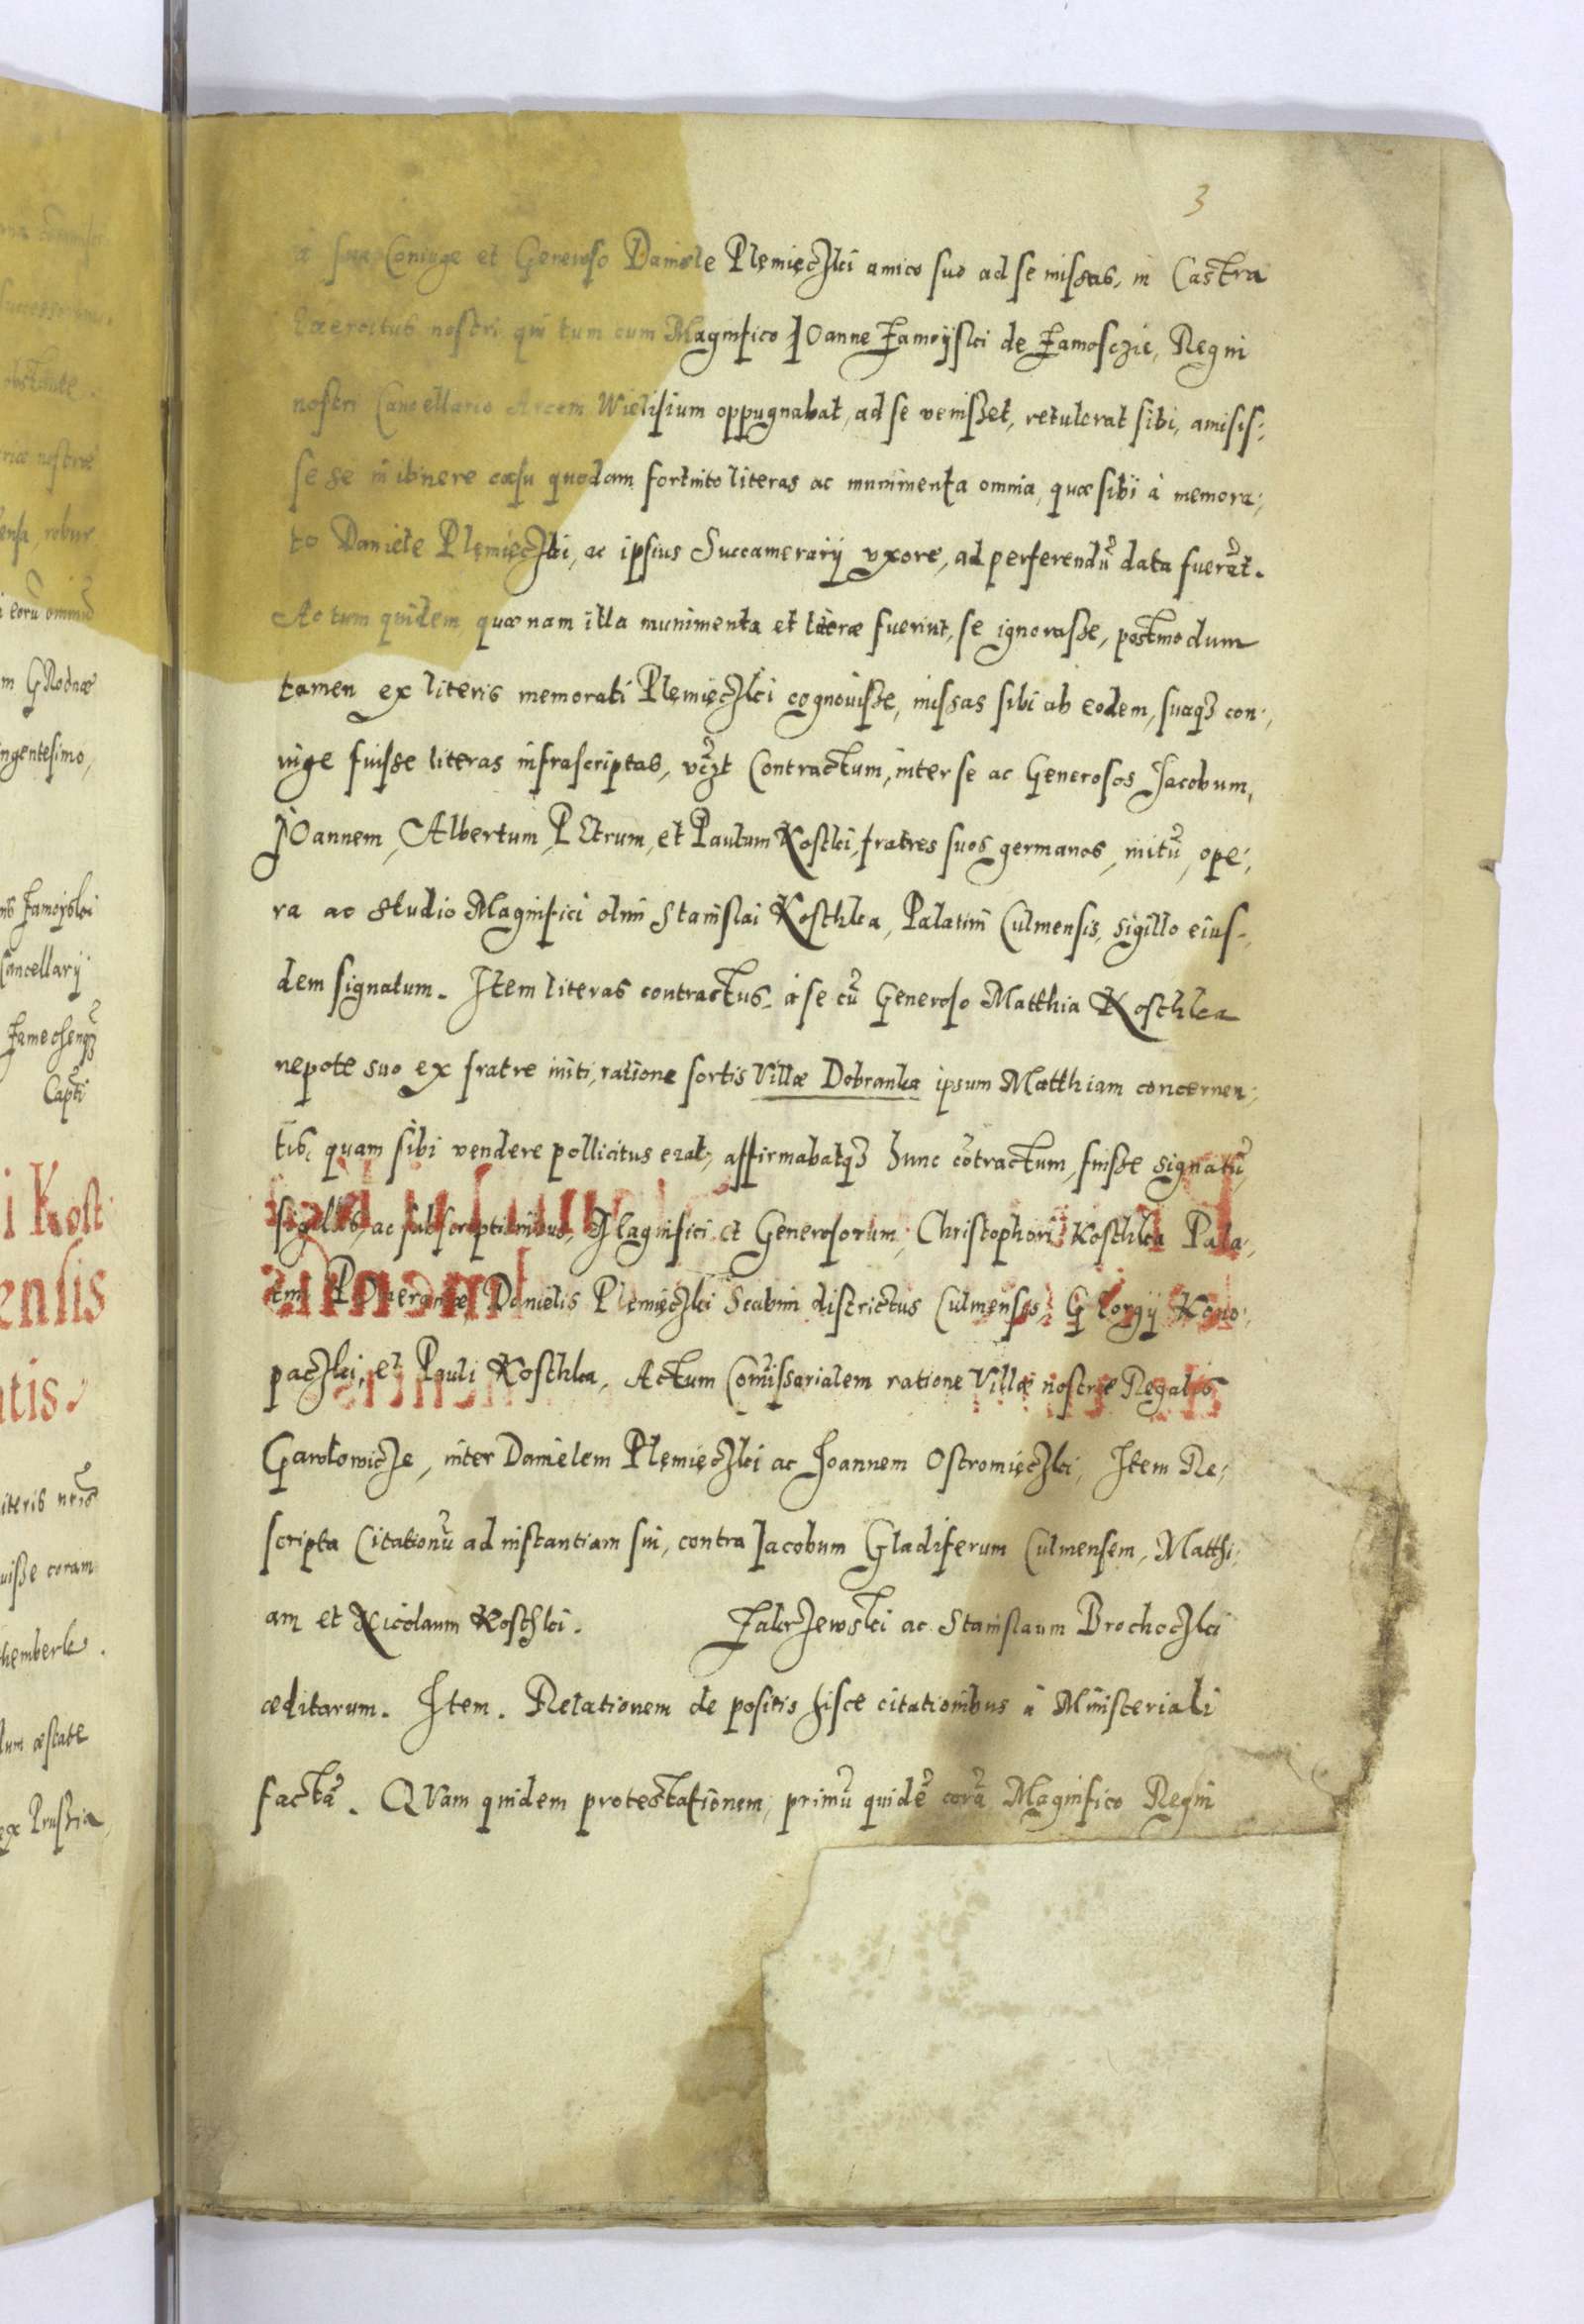 3
à sua Coniuge et Generoso Daniele Plęmięczki amico suo ad se missas, in Castra
Exercitus nostri, qui tum cum Magnifico JOanne Zamoÿski de Zamosczie, Regni
nostri Cancellario Arcem Wielisium oppugnabat, ad se venisset, retulerat sibi, amisis:
se se in itinere casu quodam fortuito literas ac munimenta omnia, quæ sibi à memora:
to Daniele Plęmięczki, ac ipsius Succamerarij vxore, ad perferendũ data fuerãt.
Ac tum quidem quæ nam illa munimenta et literæ fuerint, se ignorasse, postmodum
tamen ex literis memorati Plęmięczki cognouisse, missas sibi ab eodem, suaqȝ con:
iuge fuisse literas infrascriptas, vcȝt Contractum, inter se ac Generosos Jacobum,
JOannem, Albertum, PEtrum, et Paulum Kostki, fratres suos germanos, initũ, ope:
ra ac studio Magnifici olim Stanislai Kosthka, Palatini Culmensis, sigillo eius:
dem signatum. Item literas contractus à se cũ Generoso Matthia Kosthka
nepote suo ex fratre initi, ratione sortis Villæ Dobranka ipsum Matthiam concernen:
tis, quam sibi vendere pollicitus erat, affirmabatqȝ hunc cõtractum, fuisse signatũ,
sigillis, ac subscriptionibus, Magnifici et Generosorum, Christophori Kosthka Pala:
tini POmeraniæ, Danielis Plęmięczki Scabini districtus Culmensis, GEorgij Kono:
paczki, et Pauli Kosthka, Actum Comissarialem ratione Villæ nostræ Regalis
Gawłowicze, inter Danielem Plęmięczki ac Joannem Ostromięczki, Item Re:
scripta Citationũ ad instantiam sui, contra Jacobum Gladiferum Culmensem, Matthi:
am et Nicolaum Kosthki. Zakrzewski ac Stanislaum Brochoczki
æditarum. Item. Relationem de positis hisce citationibus à Ministeriali
factã. QVam quidem protestationem, primũ quidẽ corã Magnifico Regni